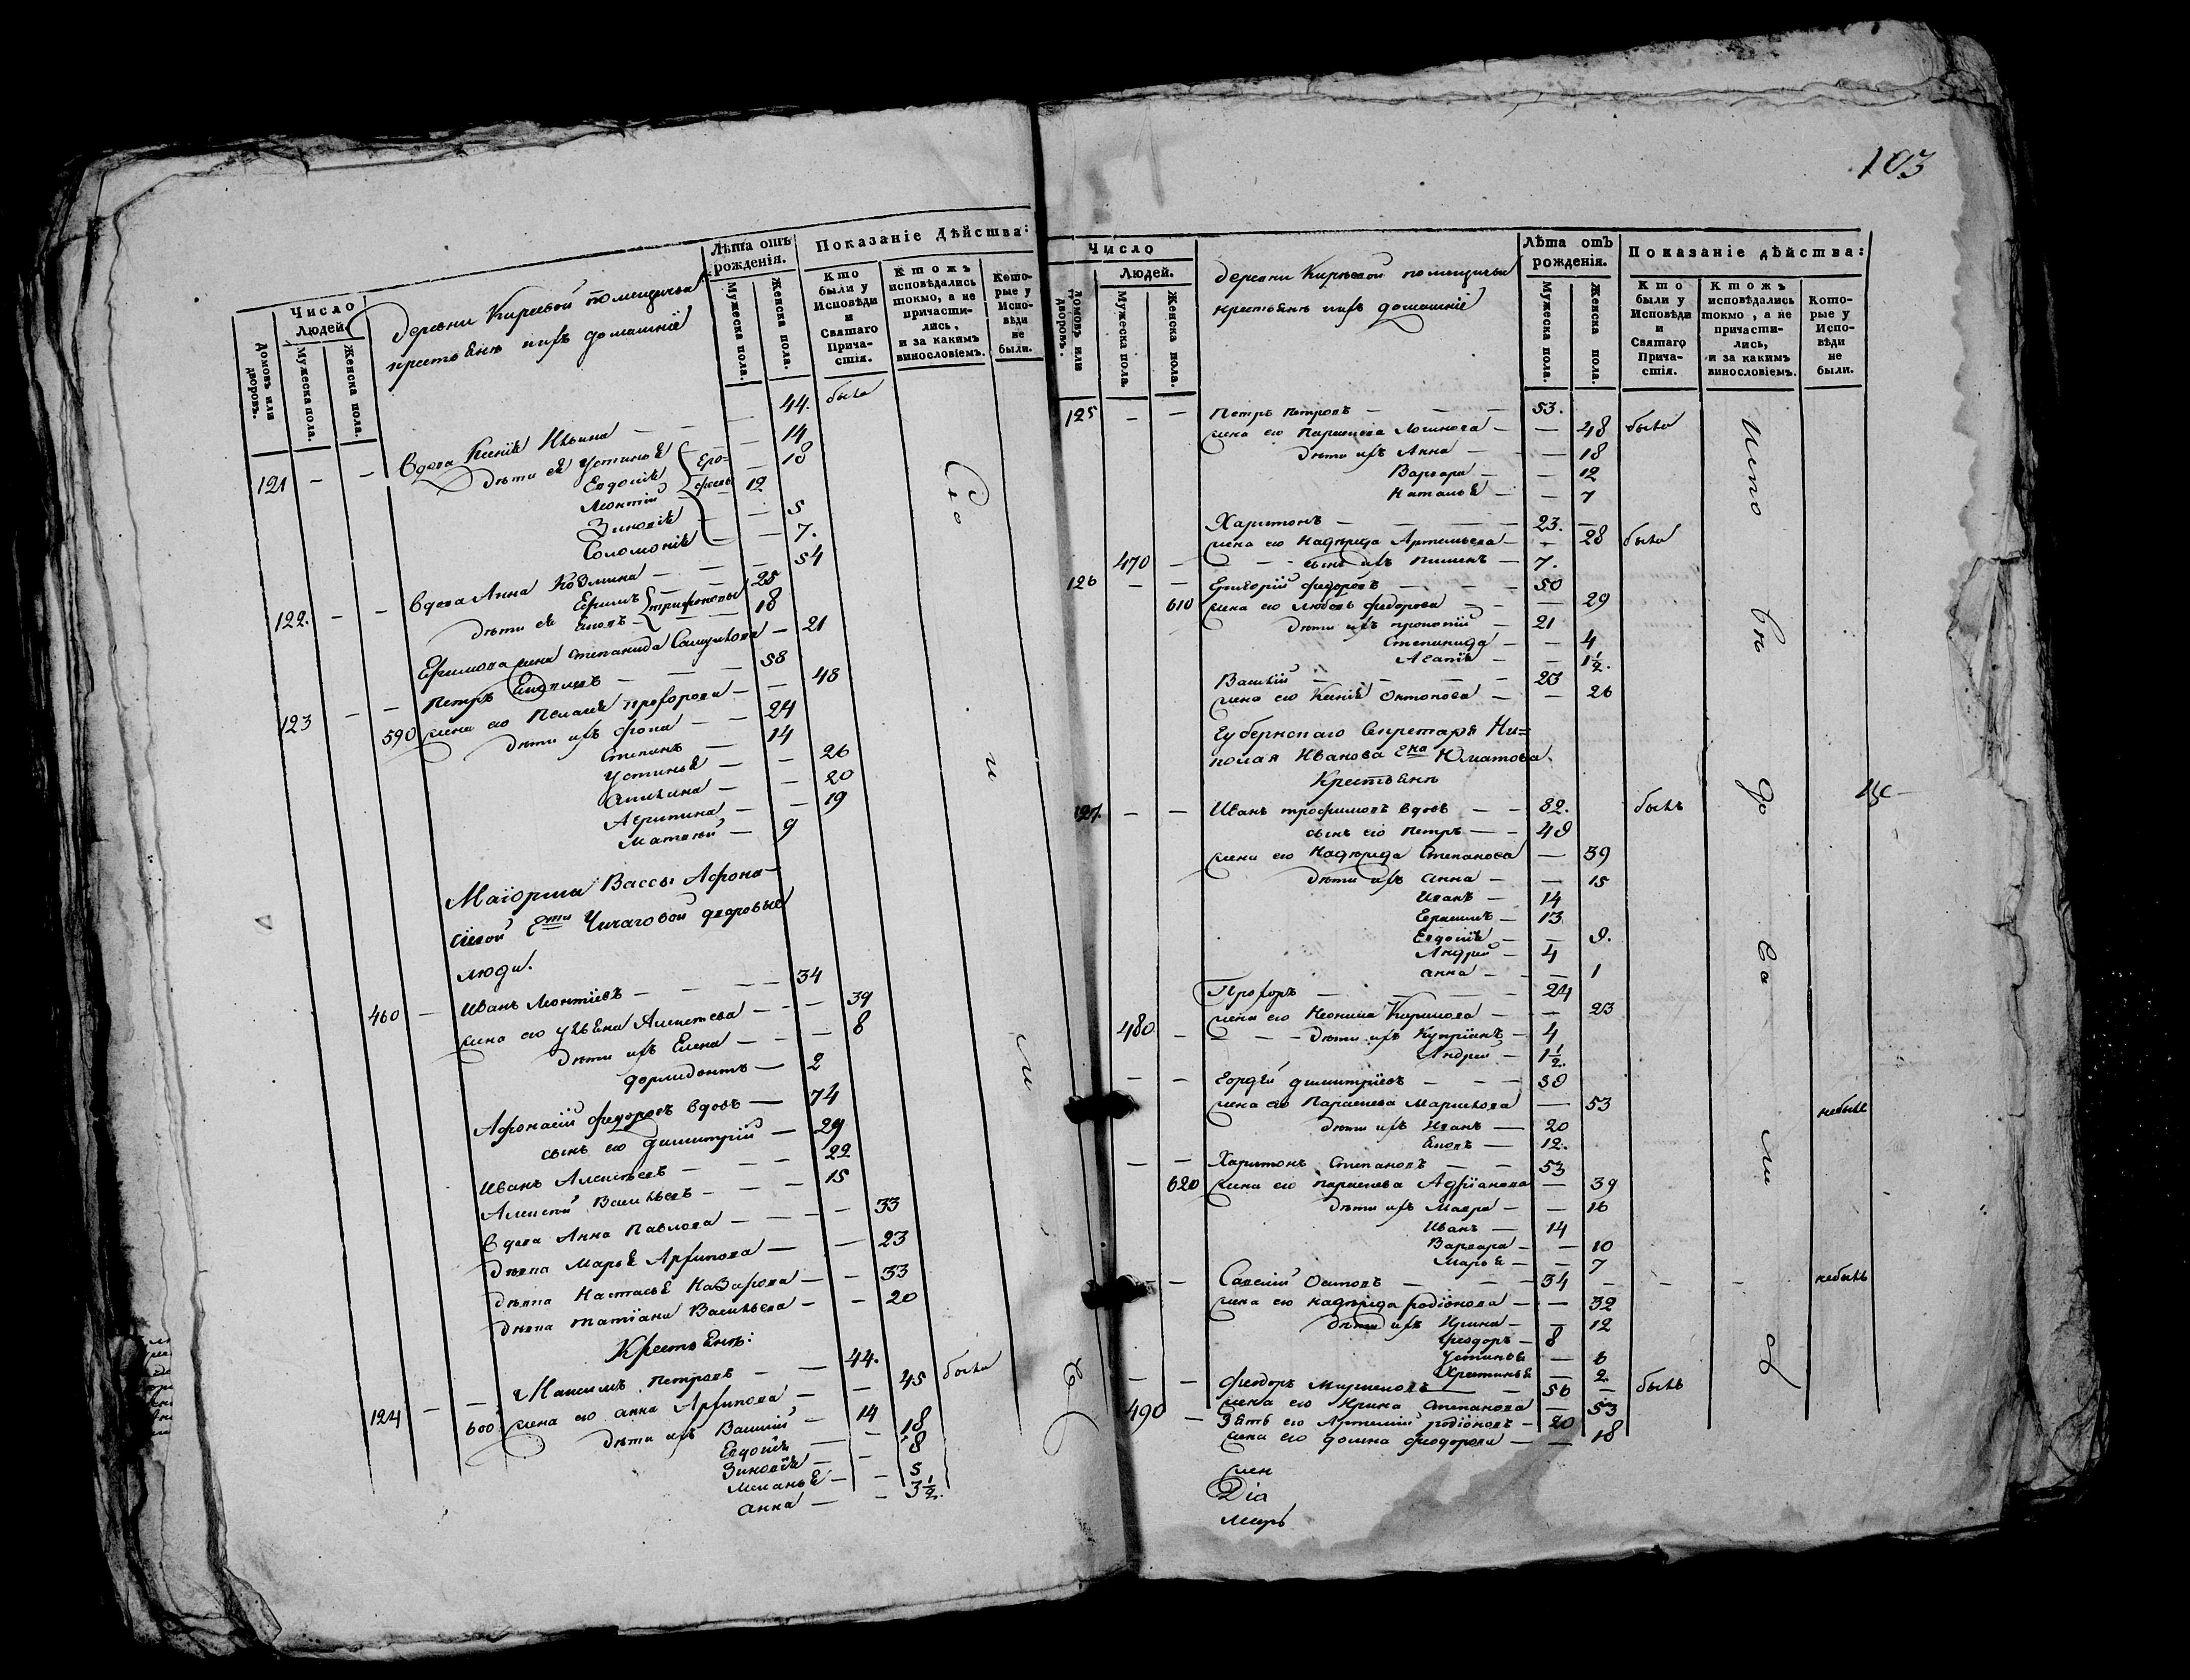 Число
Людей.
Домовъ или дворовъ.
Мужеска пола.
Женска пола.
деревни Киреевой помещичьи
крестьяне и ихъ домашніе
Лѣта отъ рожденія.
Мужеска пола.
Женска пола.
Показаніе Дѣйства:
Кто были у Исповѣди и Святаго Причастія.
Ктожъ исповѣдались токмо, а не причастились, и за какимъ винословіемъ.
Которые у Исповѣди не были.
121 — — Вдова Ксенія Ильина — — 44. была
дѣти ея Устинья — 14
Евдокія — 18
Леонтій 12
Зиновія — 5
Соломонія — 7.
122. — — Вдова Анна Козмина — — 54
дѣти ея Ефимъ трифоновы 25
Яковъ — 18
Ефимова жена Степанида Самуилова — 21
123 — — Петръ — — 58
590 жена его Пелагея Прохорова — — 48
дѣти ихъ Фока — 24
Степанъ — 14
Устинья — — 26
Акилина — — 20
Агрипина — — 19
Матвѣй — 9
Маіорши Вассы Афона-
сіевой Чичаговой дворовые
люди.
460 — Иванъ Леонтіевъ — — — 34
жена его Ульяна Алексѣева — — 39
дѣти ихъ Елена — — 8
Дормидонтъ — 2
Афонасій Федоровъ вдовъ — 74
сынъ его Димитрій — 29
Иванъ Алексѣевъ — — 22
Алексѣй Васильевъ — — 15
Вдова Анна Павлова — — — 33
дѣвка Марья Архипова — — 23
дѣвка Настасья Назарова — — 33
дѣвка Татіана Васильева — — 20
Крестьяне:
124 — — Максимъ Петровъ — — 44.
600 жена его Анна Архипова — — 45 была
дѣти ихъ Василій — 14
Евдокія — — 18
Зиновія — — 8
Меланья — — 5
Анна — — 3½.
Сіи
103
Число
Людей.
Домовъ или дворовъ.
Мужеска пола.
Женска пола.
деревни Киреевой помещичьи
крестьяне и ихъ домашніе
Лѣта отъ рожденія.
Мужеска пола.
Женска пола.
Показаніе дѣйства:
Кто были у Исповѣди и Святаго Причастія.
Ктожъ исповѣдались токмо, а не причастились, и за какимъ винословіемъ.
Которые у Исповѣди не были.
125 — — Петръ Петровъ — — — 53.
жена его Параскева Логинова — — 48 была
дѣти ихъ Анна — — 18
Варвара — — 12
Наталья — — 7
Харитонъ — — — — 23. —
жена его Надежда Артемьева — — 28 была
470 — — — сынъ ихъ Пименъ — 7.
126 — — Григорій Федоровъ — — — 50
610 жена его Любовь Федорова — — 29
дѣти ихъ Прокопій — 21
Степанида — — 4
Агапія — — 1½.
Василій — — — — 23
жена его Ксенія Антонова — — 26
Губернскаго Секретаря Ни=
колая Иванова сна Юматова
Крестьяне
127. — — Иванъ Трофимовъ вдовъ — — 82. былъ
сынъ его Петръ — — 49
жена его Надежда Степанова — 39
дѣти ихъ Анна — — 15
Иванъ — 14
Герасимъ — 13
Евдокія — — 9.
Андрей — 4
Анна — — 1
Прохоръ — — — — 24
жена его Неонила Кирилова — — 23
480 — — — дѣти ихъ Купріянъ — 4
Андрей — 1½.
— — Гордѣй Димитріевъ — — — 59
жена его Параскева Маркелова — 53 небыла
дѣти ихъ Иванъ — 20
Яковъ — 12.
— — Харитонъ Степановъ — — 53
620 жена его Параскева Адріанова — 39
дѣти ихъ Мавра — — 16
Иванъ — 14
Варвара — — 10
Марья — — 7
— — Савелій Осиповъ — — — 34 — — — небылъ
жена его Надежда Родіонова — — 32
дѣти ихъ Ирина — — 12
Феодоръ — 8
Устинья — 6
Христинья — 2.
— — Феодоръ — 56 — былъ
490 — жена его Ирина Степанова — 53
Зять его Артемій Родіоновъ — 20
жена его Домна Феодорова — — 18
Испо
вѣ
до
ва
ли
сь
Діа